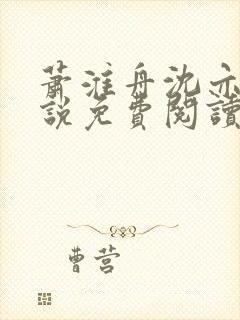 萧淮舟沈亦
說免費閱讀
曹营